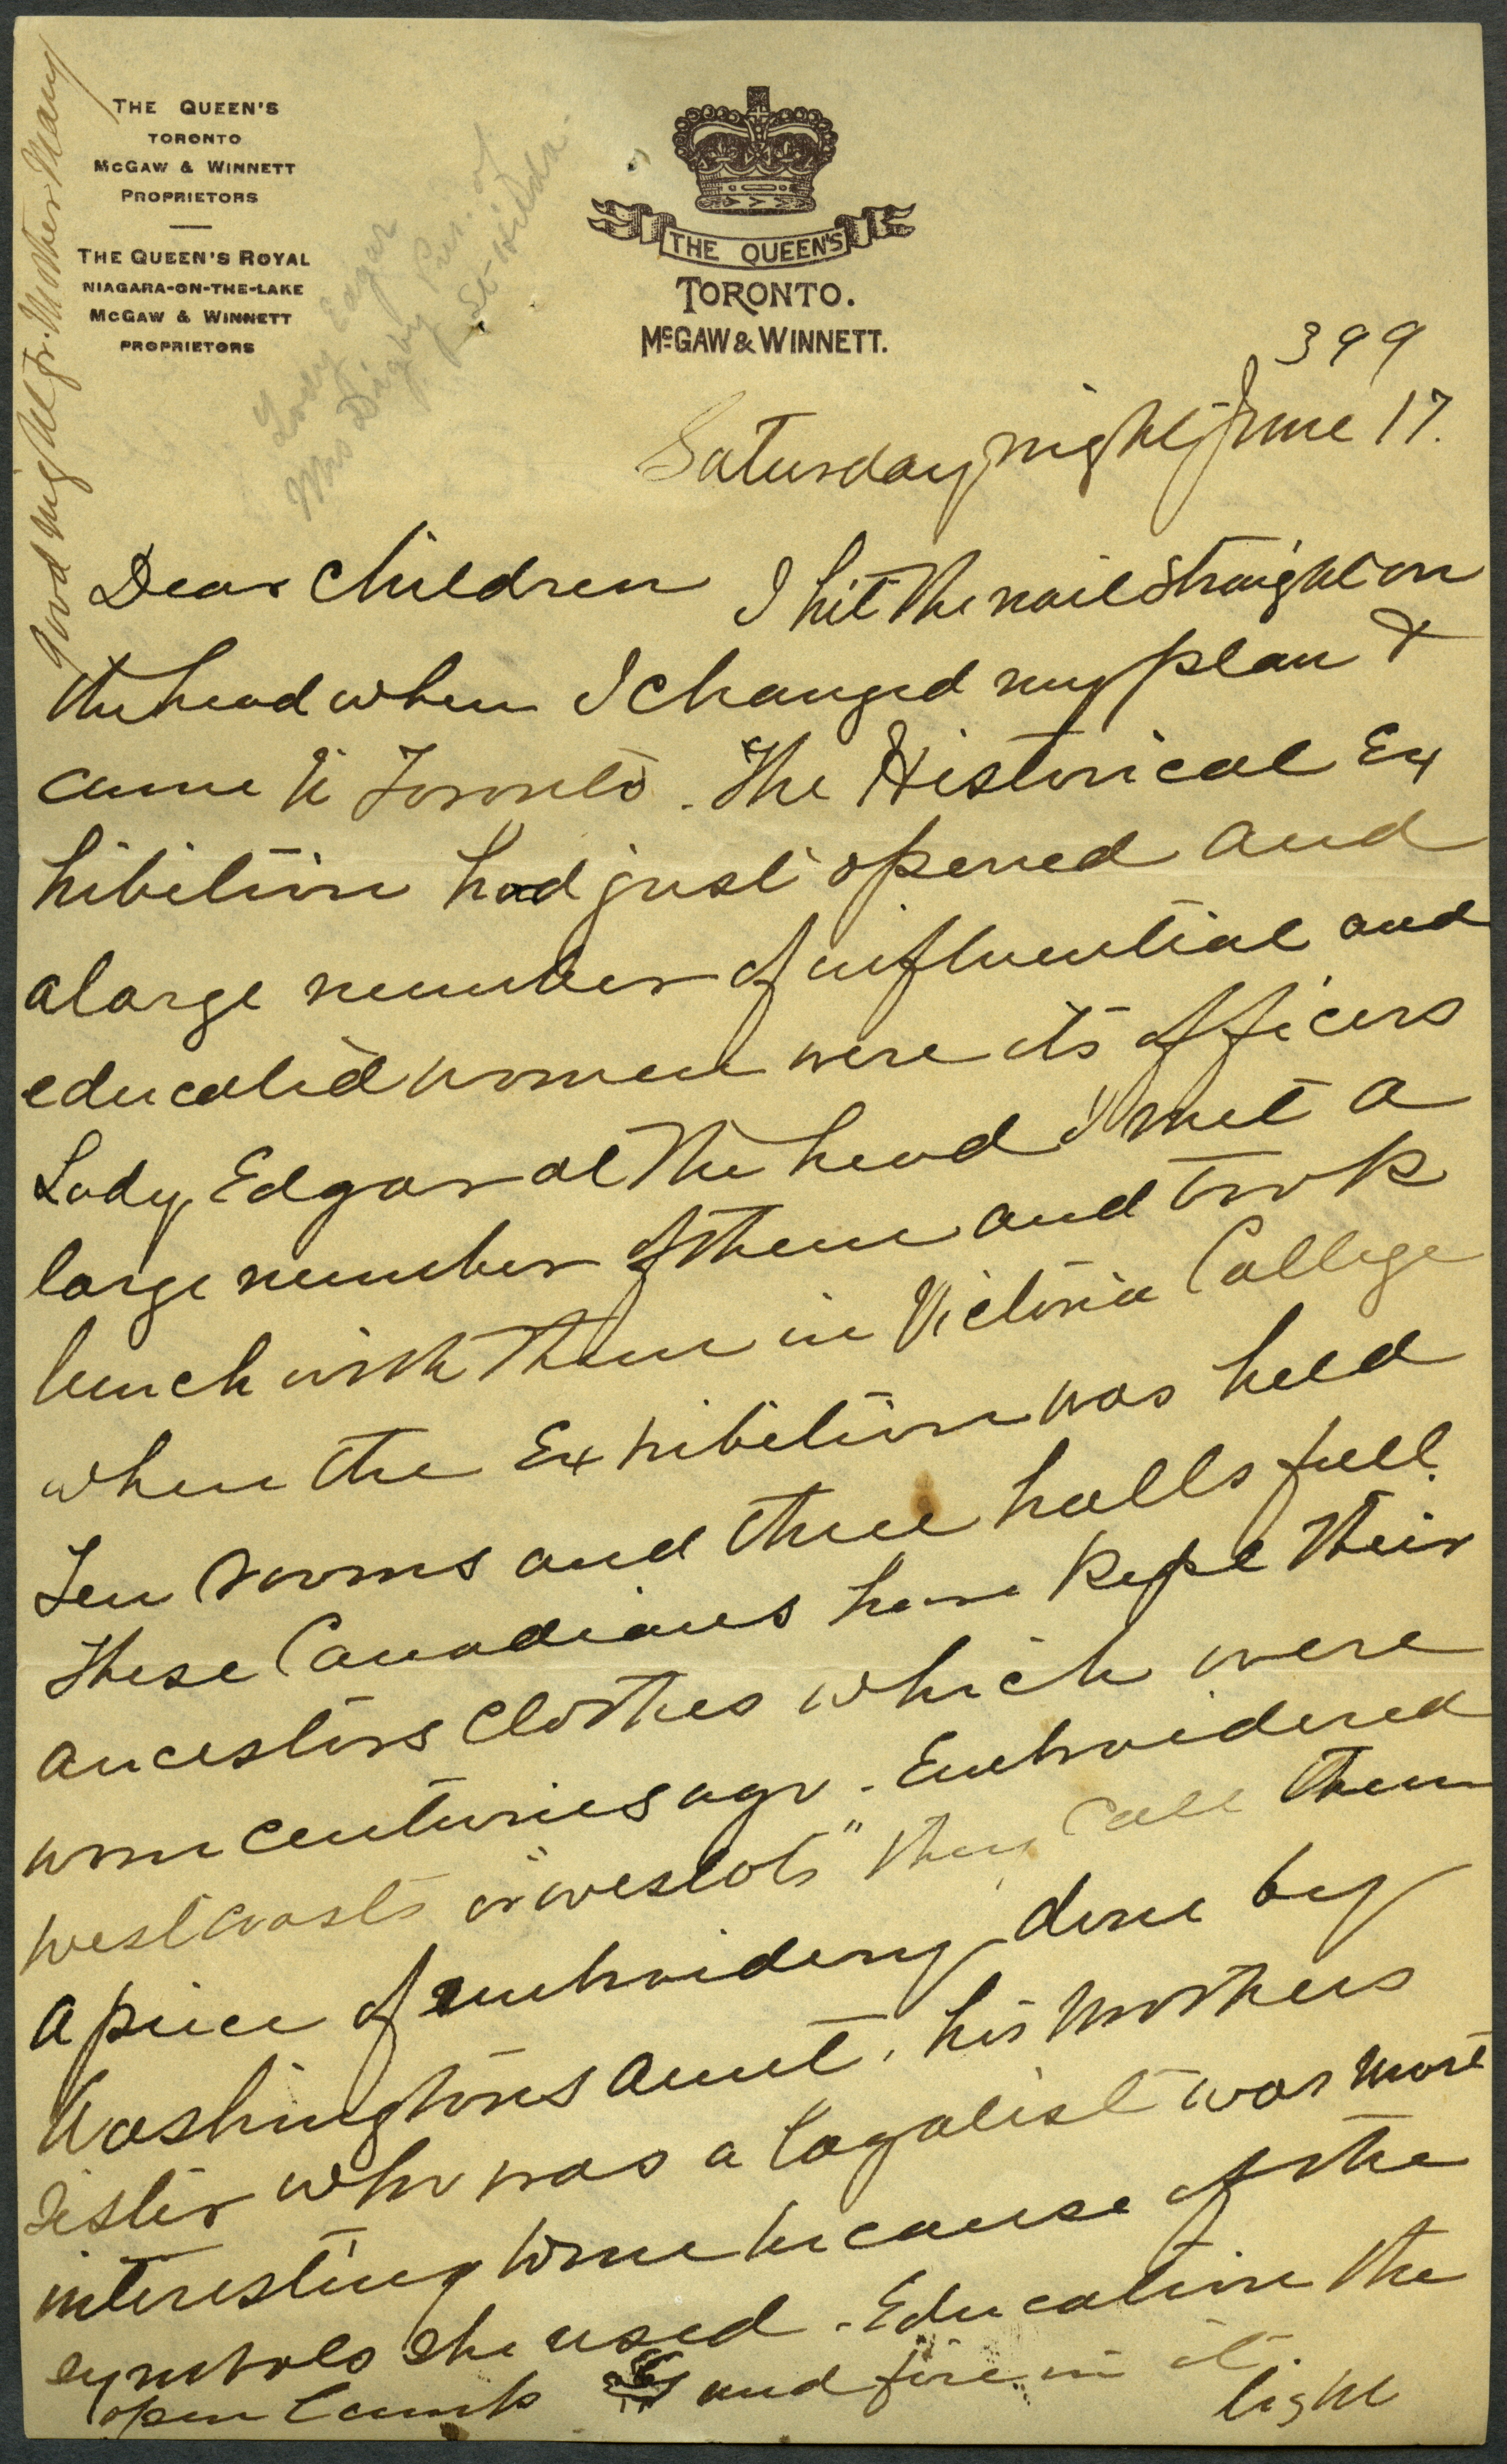 THE QUEEN'S
TORONTO
McGAW & WINNETT
PROPRIETORS
THE QUEEN'S ROYAL
NIAGARA-ON-THE-LAKE
McGAW & WINNETT
PROPRIETORS
THE QUEEN'S
TORONTO.
McGAW & WINNETT.
Good night all fr. Mother Mary
Lady Edgar
Mrs Digby Pres. of
St Hilda.
399
Saturday night June 17.
Dear Children I hit the nail straight on
the head when I changed my plan &
came to Toronto. The Historical Ex
hibition had just opened and
a large number of influential and
educated women were its officers
Lady Edgar at the head I met a
large number of them and took
lunch with them in Victoria College
where the Exhibition was held
Ten rooms and three halls full.
These Canadians have kept their
ancestors clothes which were
worn centuries ago. Embroidered
westcoasts or "wescots" they call them
a piece of embroidery done by
Washingtons aunt, his mothers
sister who was a loyalist was most
interesting to me because of the
symbols she used. Education the
open lamp and fire in it.
light